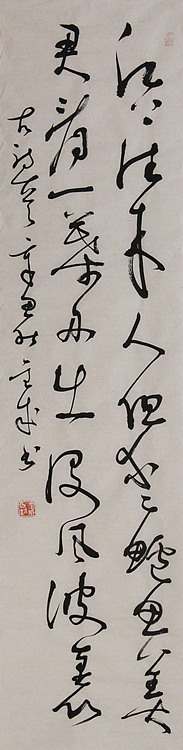 江上往来人但爱鲈鱼美
君看一叶舟出没风波里
古诗一首 辛卯秋 书